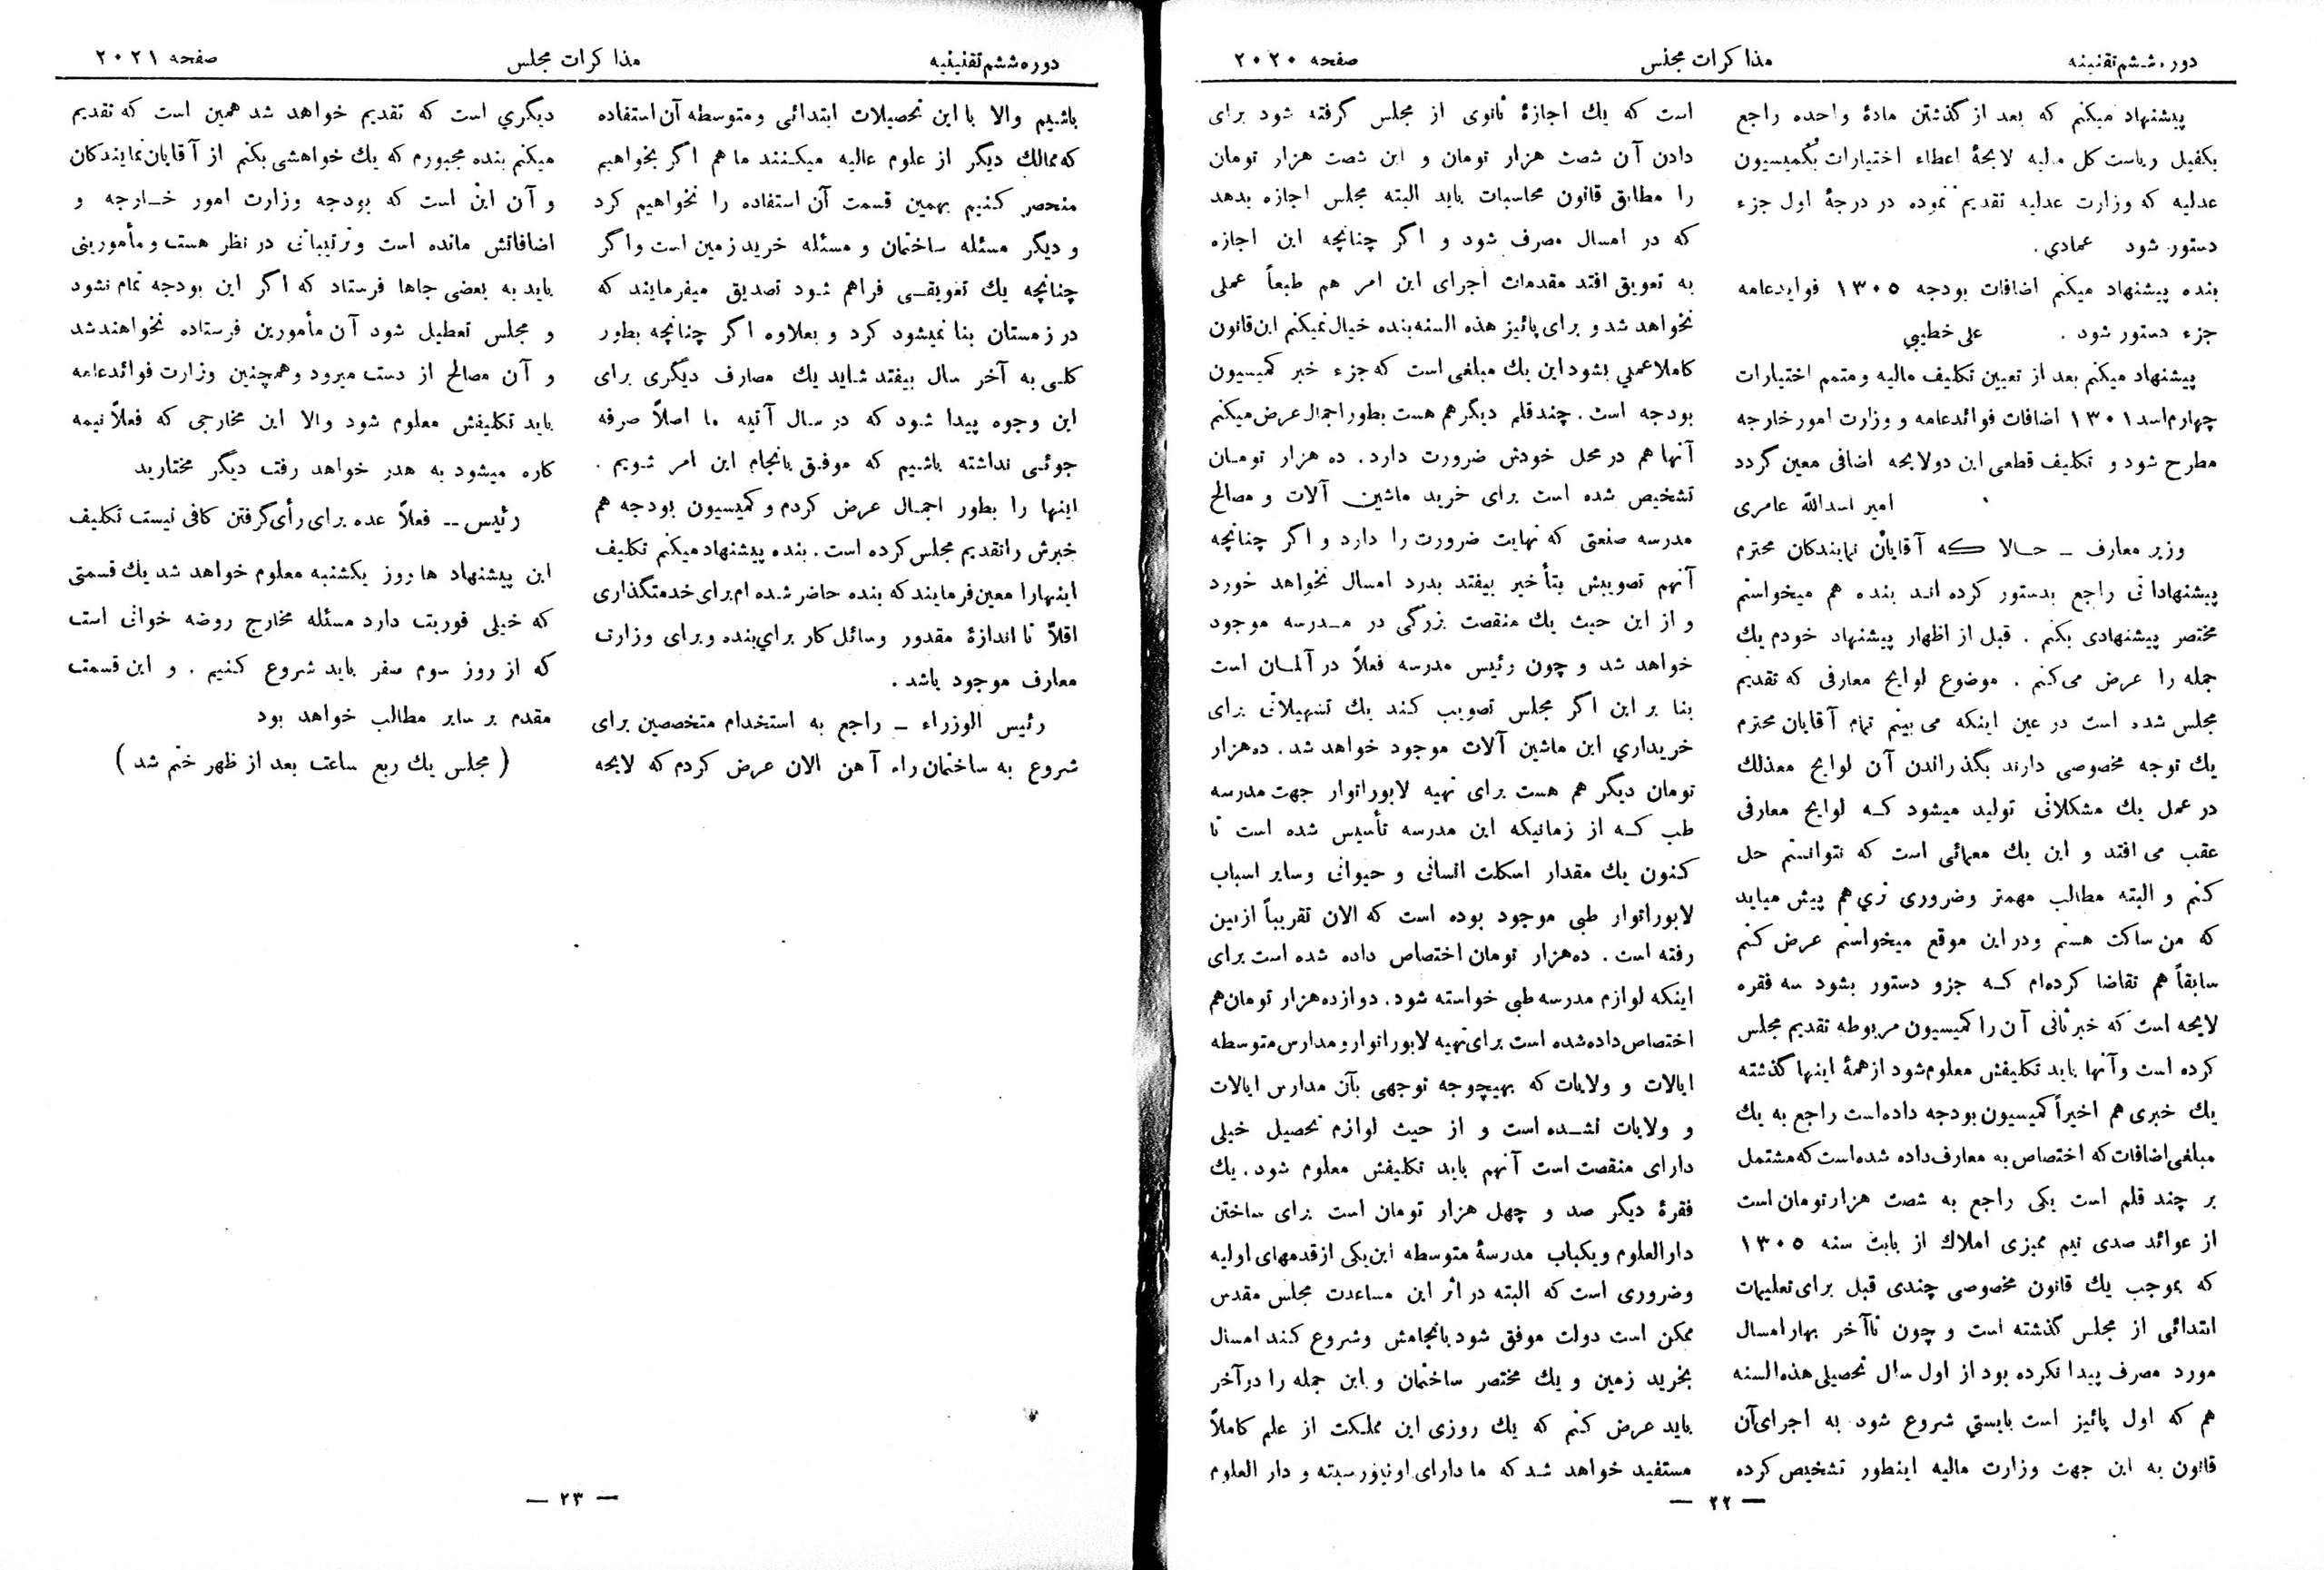 دوره ششم تقنینه
مذاکرات مجلس
صفحه ۲۰۲۰
پیشنهاد میکنم که بعد از گذشتن مادهٔ واحده راجع
بکفیل ریاست کل مالیه لایحهٔ اعطاء اختیارات بکمیسیون
عدلیه که وزارت عدلیه تقدیم نموده در درجهٔ اول جزء
دستور شود عمادي.
بنده پیشنهاد میکنم اضافات بودجه ۱۳۰۵ فوایدعامه
جزء دستور شود . علی خطیبي
پیشنهاد میکنم بعد از تعیین تکلیف مالیه و متمم اختیارات
چهارم اسد ۱۳۰۱ اضافات فوائدعامه و وزارت امور خارجه
مطرح شود و تکلیف قطعی این دولایحه اضافی معین گردد
امیر اسدالله عامری
وزیر معارف ــ حالا که آقایان نمایندکان محترم
پیشنهاداتی راجع بدستور کرده اند بنده هم میخواستم
مختصر پیشنهادی بکنم . قبل از اظهار پیشنهاد خودم یك
جمله را عرض می‌کنم . موضوع لوایح معارفی که تقدیم
مجلس شده است در عین اینکه می بینم تمام آقایان محترم
یك توجه مخصوصی دارند بگذراندن آن لوایح معذلك
در عمل یك مشکلاتی تولید میشود که لوایح معارفی
عقب می افتد و این یك معمائی است که نتوانستم حل
کنم و البته مطالب مهمتر وضروری تري هم پیش میاید
که من ساکت هستم ودر این موقع میخواستم عرض کنم
سابقاً هم تقاضا کرده‌ام که جزو دستور بشود سه فقره
لایحه است که خبر ثانی آن را کمیسیون مربوطه تقدیم مجلس
کرده است وآنها باید تکلیفش معلوم شود از همهٔ اینها گذشته
یك خبری هم اخیراً کمیسیون بودجه داده است راجع به یك
مبلغی اضافات که اختصاص به معارف داده شده است که مشتمل
بر چند قلم است یکی راجع به شصت هزار تومان است
از عوائد صدی نیم ممیزی املاك از بابت سنه ۱۳۰۵
که بموجب یك قانون مخصوصی چندی قبل برای تعلیمات
ابتدائی از مجلس گذشته است و چون تاآخر بهار امسال
مورد مصرف پیدا نکرده بود از اول سال تحصیلی هذه السنه
هم که اول پائیز است بایستي شروع شود به اجرای آن
قانون به این جهت وزارت مالیه اینطور تشخیص کرده
است که یك اجازهٔ ثانوی از مجلس گرفته شود برای
دادن آن شصت هزار تومان و این شصت هزار تومان
را مطابق قانون محاسبات باید البته مجلس اجازه بدهد
که در امسال مصرف شود و اگر چنانچه این اجازه
به تعویق افتد مقدمات اجرای این امر هم طبعاً عملی
نخواهد شد و برای پائیز هذه السنه بنده خیال نمیکنم این قانون
کاملا عملي بشود این یك مبلغی است که جزء خبر کمیسیون
بودجه است . چند قلم دیگر هم هست بطور اجمال عرض میکنم
آنها هم در محل خودش ضرورت دارد. ده هزار تومان
تشخیص شده است برای خرید ماشین آلات و مصالح
مدرسه صنعتی که نهایت ضرورت را دارد و اگر چنانچه
آنهم تصویبش بتأخیر بیفتد بدرد امسال نخواهد خورد
و از این حیث یك منقصت بزرگی در مدرسه موجود
خواهد شد و چون رئیس مدرسه فعلاً در آلمان است
بنا بر این اگر مجلس تصویب کند یك تسهیلاتی برای
خریداري این ماشین آلات موجود خواهد شد. ده‌هزار
تومان دیگر هم هست برای تهیه لابوراتوار جهت مدرسه
طب که از زمانیکه این مدرسه تأسیس شده است تا
کنون یك مقدار اسکلت انسانی و حیوانی وسایر اسباب
لابوراتوار طبی موجود بوده است که الان تقریباً ازبین
رفته است . ده‌هزار تومان اختصاص داده شده است برای
اینکه لوازم مدرسه طبی خواسته شود. دوازده هزار تومان هم
اختصاص داده شده است برای تهیه لابوراتوار و مدارس متوسطه
ایالات و ولایات که بهیچوجه توجهی بآن مدارس ایالات
و ولایات نشده است و از حیث لوازم تحصیل خیلی
دارای منقصت است آنهم باید تکلیفش معلوم شود. یك
فقرهٔ دیگر صد و چهل هزار تومان است برای ساختن
دارالعلوم ویکباب مدرسهٔ متوسطه این یکی از قدمهای اولیه
وضروری است که البته در اثر این مساعدت مجلس مقدس
ممکن است دولت موفق شود بانجامش وشروع کند امسال
بخرید زمین و یك مختصر ساختمان و این جمله را درآخر
باید عرض کنم که یك روزی این مملکت از علم کاملاً
مستفید خواهد شد که ما دارای اونیورسیته و دار العلوم
— ۲۲ —
دوره ششم تقنینیه
مذاکرات مجلس
صفحه ۲۰۲۱
باشیم والا با این تحصیلات ابتدائی ومتوسطه آن استفاده
که ممالك دیگر از علوم عالیه میکنند ما هم اگر بخواهیم
منحصر کنیم بهمین قسمت آن استفاده را نخواهیم کرد
و دیگر مسئله ساختمان و مسئله خرید زمین است واگر
چنانچه یك تعویقی فراهم شود تصدیق میفرمایند که
در زمستان بنا نمیشود کرد و بعلاوه اگر چنانچه بطور
کلی به آخر سال بیفتد شاید یك مصارف دیگری برای
این وجوه پیدا شود که در سال آتیه ما اصلاً صرفه
جوئی نداشته باشیم که موفق بانجام این امر شویم .
اینها را بطور اجمال عرض کردم و کمیسیون بودجه هم
خبرش را تقدیم مجلس کرده است. بنده پیشنهاد میکنم تکلیف
اینهارا معین فرمایند که بنده حاضر شده ام برای خدمتگذاری
اقلاً تا اندازهٔ مقدور وسائل کار براي بنده وبرای وزارت
معارف موجود باشد.
رئیس الوزراء ــ راجع به استخدام متخصصین برای
شروع به ساختمان راه آهن الان عرض کردم که لایحه
دیگري است که تقدیم خواهد شد همین است که تقدیم
میکنم بنده مجبورم که یك خواهشی بکنم از آقایان نمایندکان
و آن این است که بودجه وزارت امور خارجه و
اضافاتش مانده است وترتیباتی در نظر هست ومأمورینی
باید به بعضی جاها فرستاد که اگر این بودجه تمام نشود
و مجلس تعطیل شود آن مأمورین فرستاده نخواهند شد
و آن مصالح از دست میرود وهمچنین وزارت فوائدعامه
باید تکلیفش معلوم شود والا این مخارجی که فعلاً نیمه
کاره میشود به هدر خواهد رفت دیگر مختارید
رئیس ــ فعلاً عده برای رأی گرفتن کافی نیست تکلیف
این پیشنهاد ها روز یکشنبه معلوم خواهد شد یك قسمتی
که خیلی فوریت دارد مسئله مخارج روضه خوانی است
که از روز سوم صفر باید شروع کنیم . و این قسمت
مقدم بر سایر مطالب خواهد بود
( مجلس یك ربع ساعت بعد از ظهر ختم شد )
— ۲۳ —